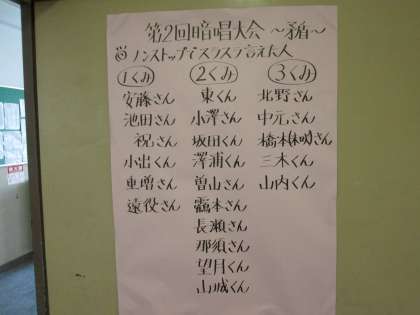 第2回暗唱大会 〜矛盾〜
ノンストップでスラスラ言えた人
1くみ 2くみ 3くみ
安藤さん 東くん 北野さん
池田さん 小澤さん 中元さん
祝さん 坂田くん 橋本さん
小出くん 澤浦くん 三木くん
車増さん 曽山さん 山内くん
遠役さん 靏本さん
長瀬さん
那須さん
望月くん
山城くん